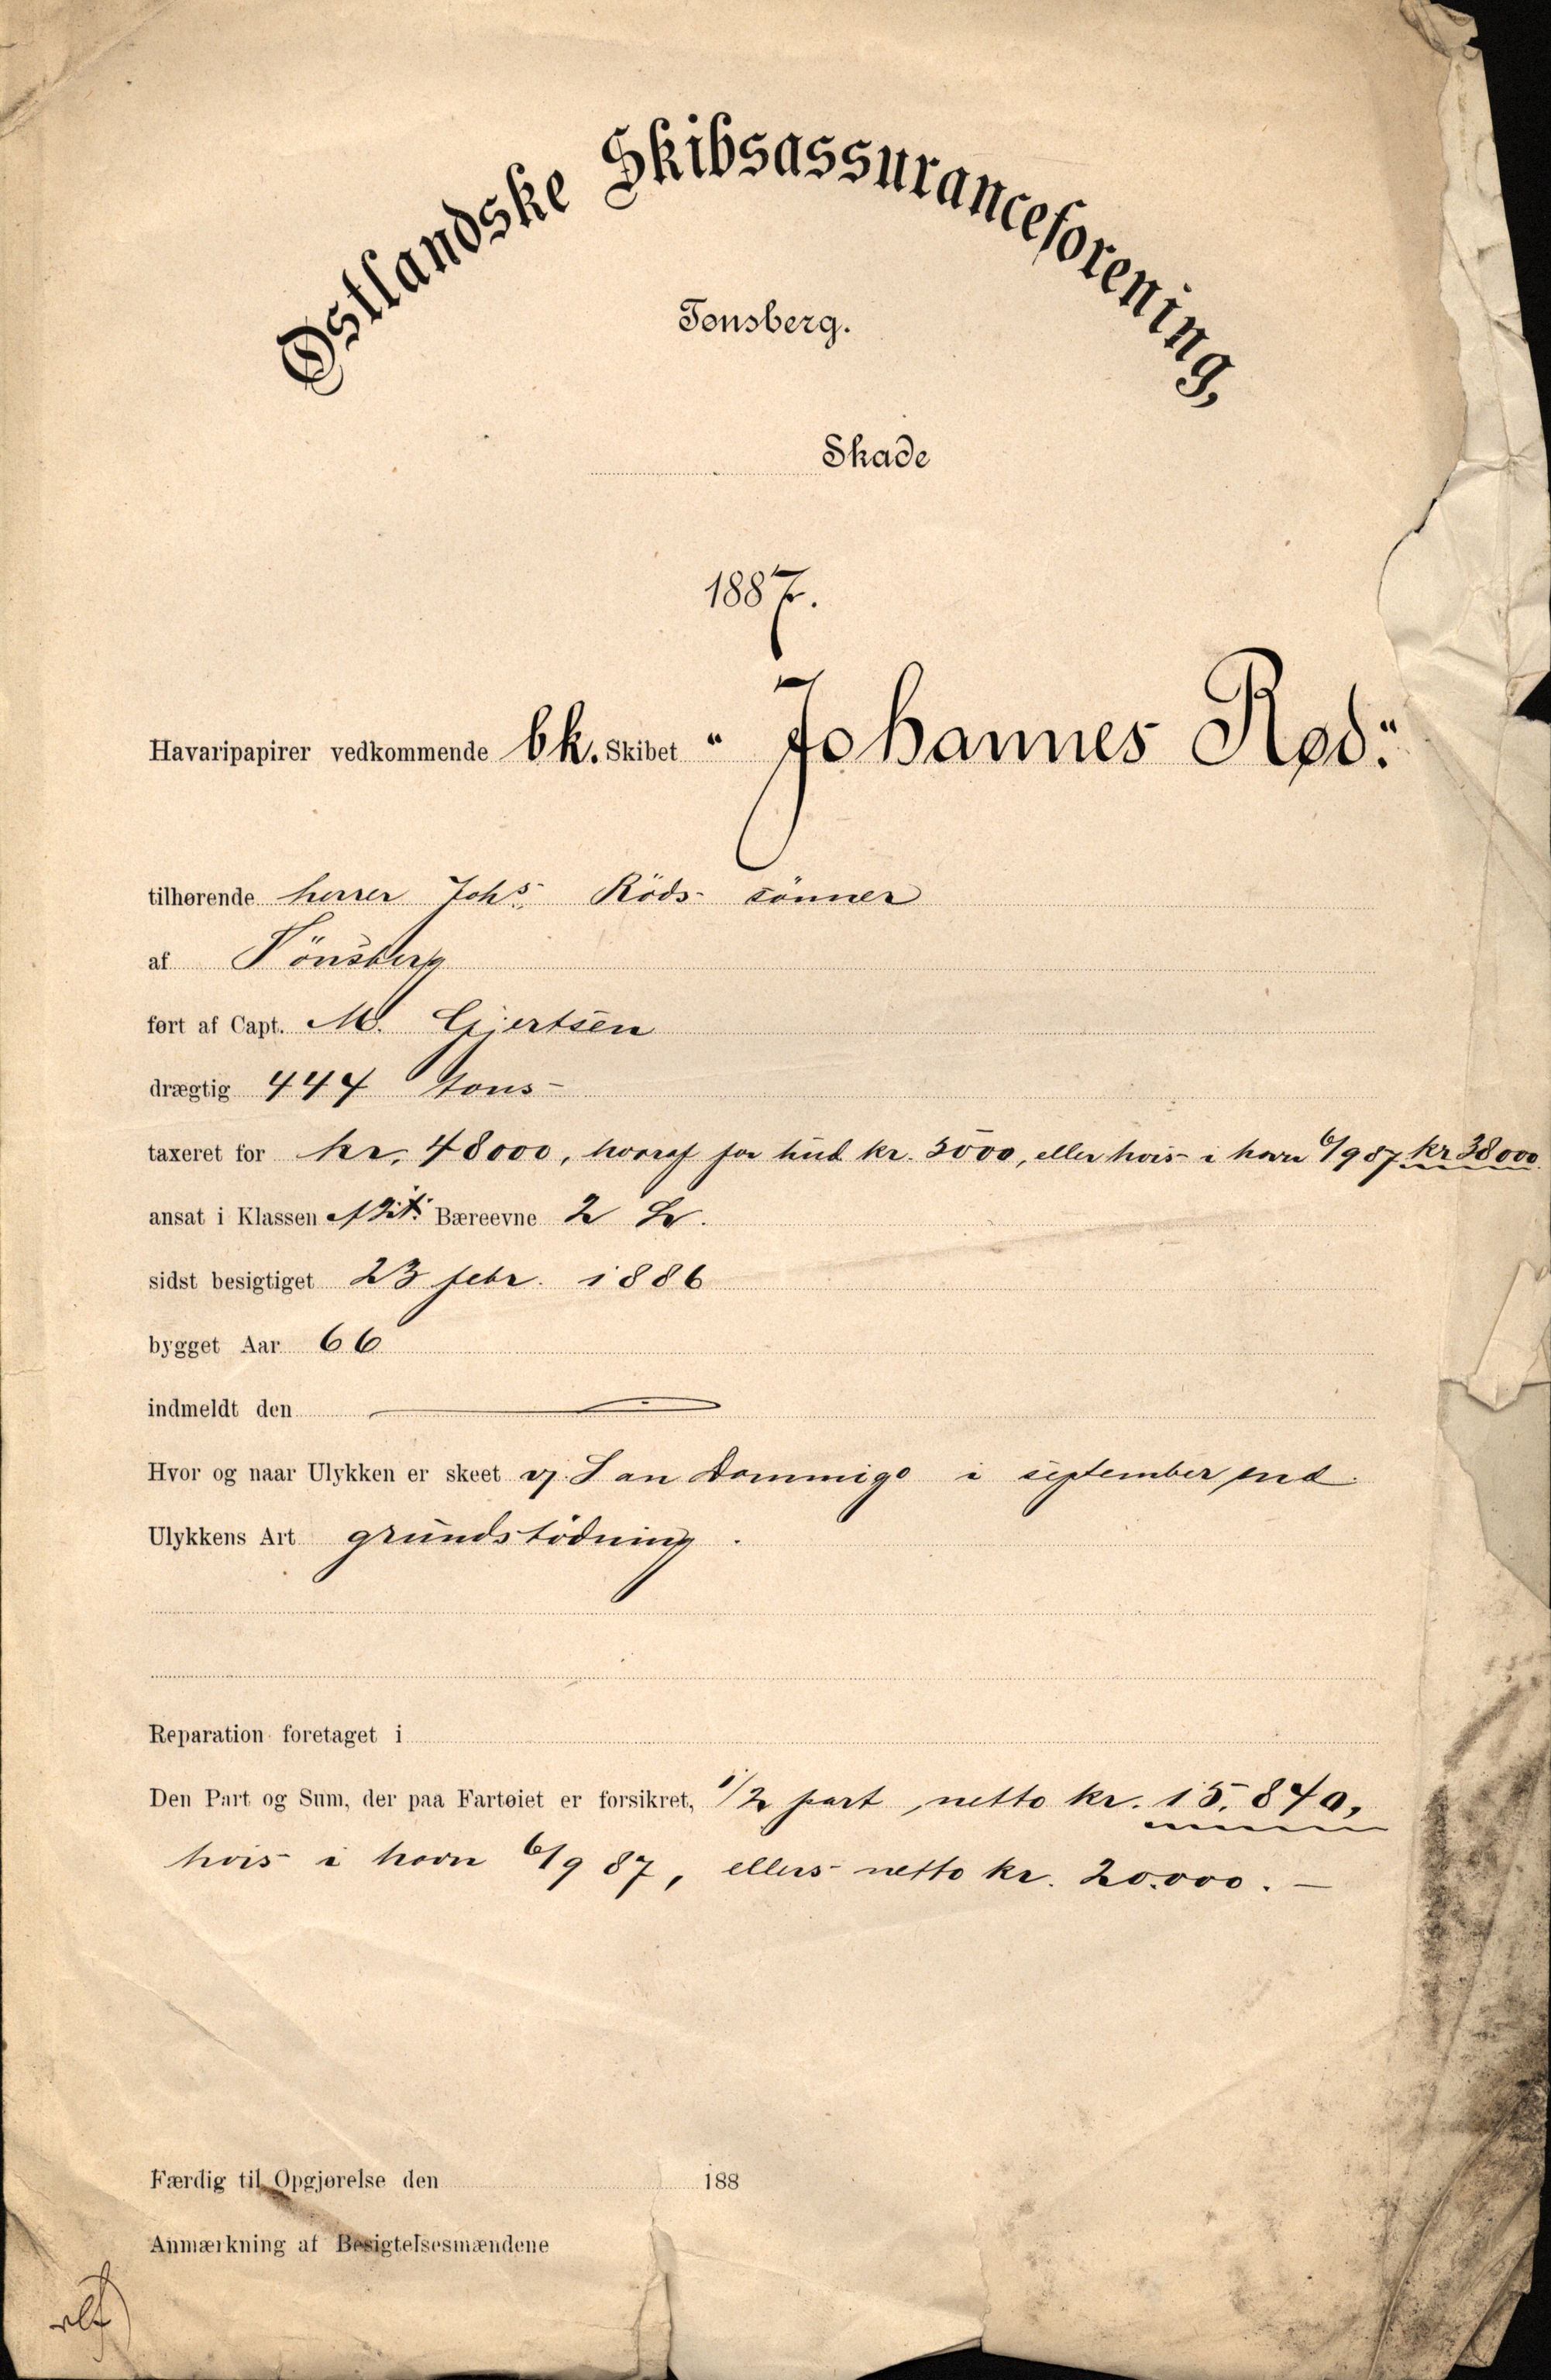 Østlandske Skibsassuranceforening,
Tønsberg.
Skade
1887.
Havaripapirer vedkommende bk. Skibet "Johannes Rød."
tilhørende herrer Johs. Röds sönner
af Tönsberg
ført af Capt. M. Gjertsen
drægtig 444 tons
taxeret for kr. 48000, hvoraf for hud kr. 5000, eller hvis i havn 6/9 87 kr 38000
ansat i Klassen Bæreevne 2
sidst besigtiget 23 febr. 1886
bygget Aar 66
indmeldt den
Hvor og naar Ulykken er skeet v/ San Dommigo i september md.
Ulykkens Art grundstödning.
Reparation foretaget i
Den Part og Sum, der paa Fartøiet er forsikret, 1/2 part, netto kr. 15.840,
hvis i havn 6/9 87, ellers netto kr. 20.000.—
Færdig til Opgjørelse den 188
Anmærkning af Besigtelsesmændene